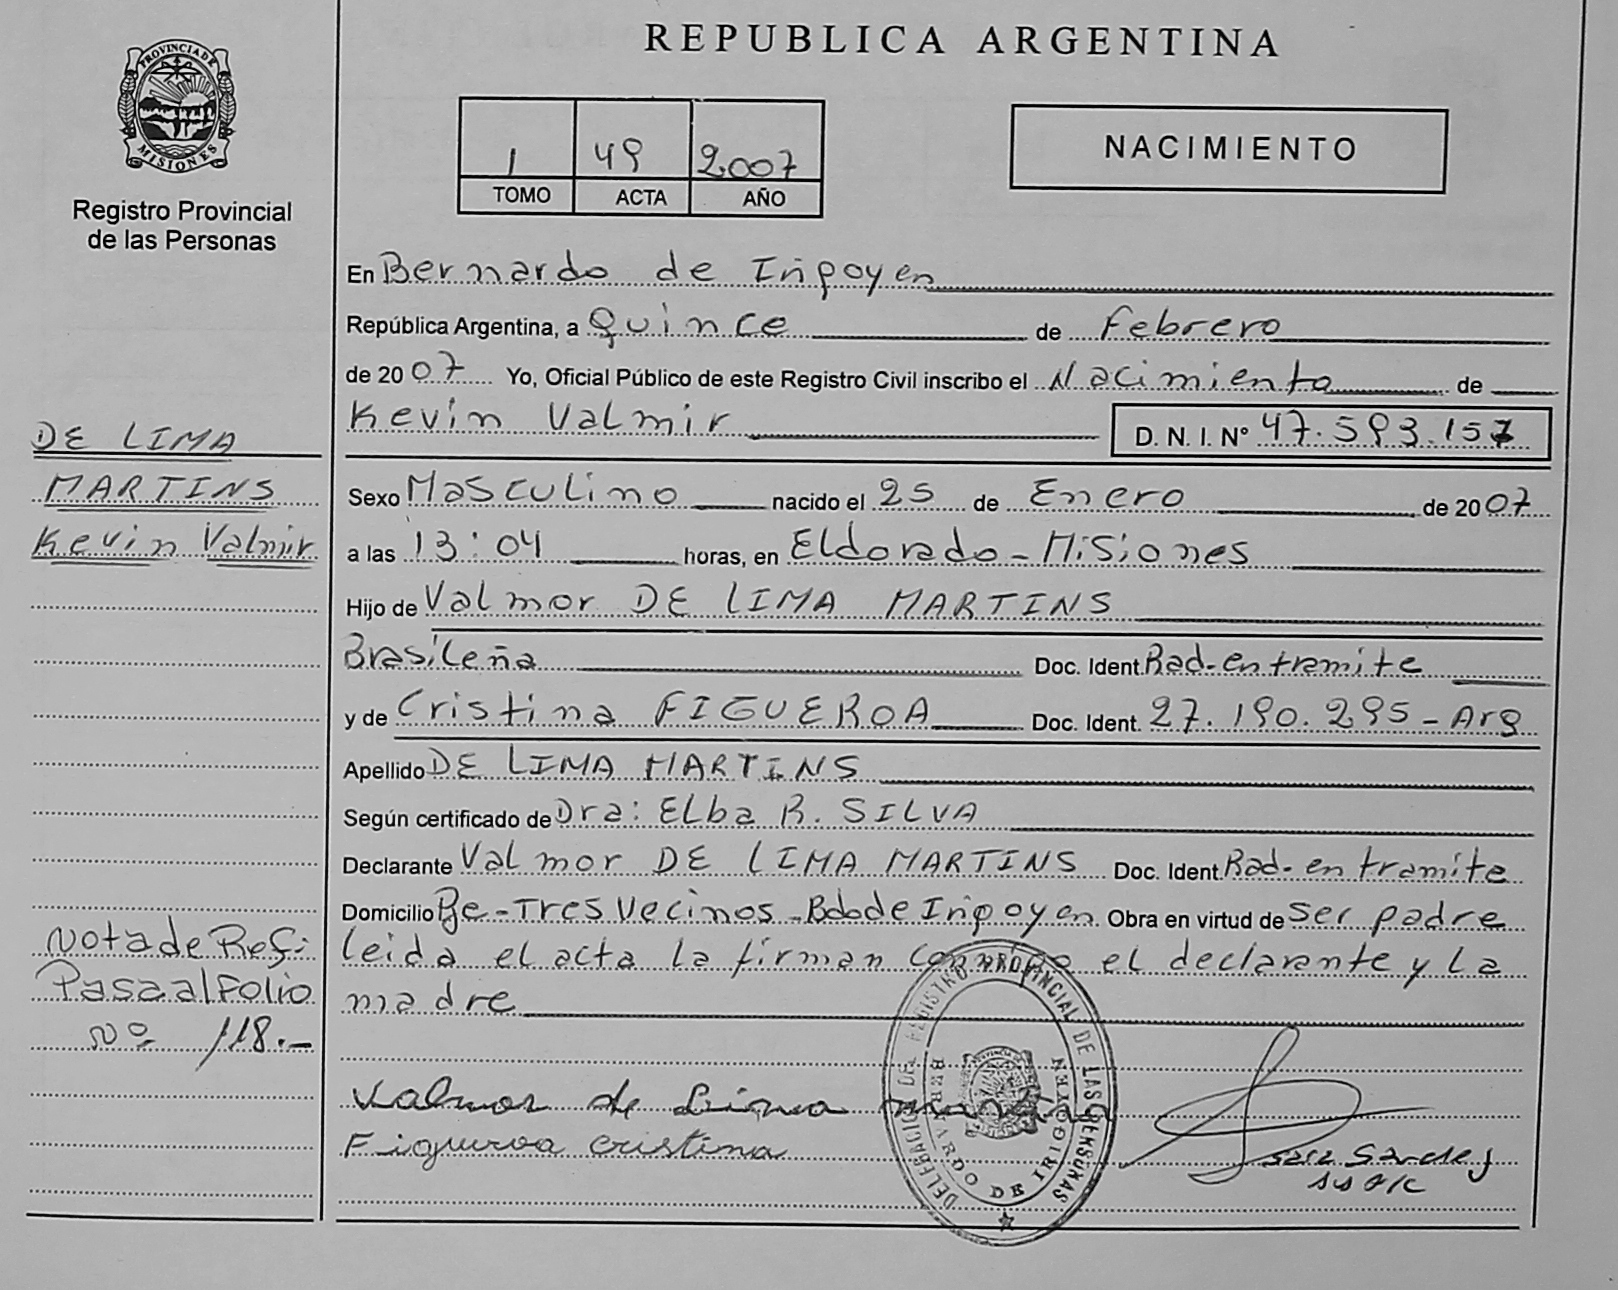 REPUBLICA ARGENTINA
PROVINCIA DE
MISIONES
Registro Provincial
de las Personas
1 49 2007
TOMO ACTA AÑO
NACIMIENTO
En Bernardo de Irigoyen
República Argentina, a Quince de Febrero
de 2007 Yo, Oficial Público de este Registro Civil inscribo el Nacimiento de
Kevin Valmir D. N. I. Nº 47.593.157
Sexo Masculino nacido el 25 de Enero de 2007
a las 13:04 horas, en Eldorado - Misiones
Hijo de Valmor DE LIMA MARTINS
Brasileña Doc. Ident. Rad. en tramite
y de Cristina FIGUEROA Doc. Ident. 27.190.295 - Arg
Apellido DE LIMA MARTINS
Según certificado de Dra: Elba R. SILVA
Declarante Valmor DE LIMA MARTINS Doc. Ident. Rad. en tramite
Domicilio Pje - Tres Vecinos - Bdo de Irigoyen. Obra en virtud de ser padre
leida el acta la firman conmigo el declarante y la
madre
Valmor de Lima Martins
Figueroa Cristina
DE LIMA
MARTINS
Kevin Valmir
Nota de Ref:
Pasa al Folio
Nº 118.-
DELEGACION DEL REGISTRO PROVINCIAL DE LAS PERSONAS
BERNARDO DE IRIGOYEN